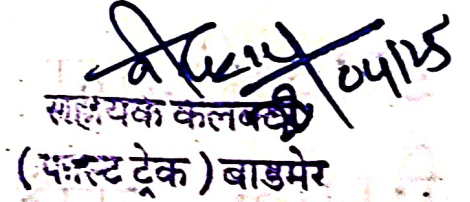 04/25
सहायक कलक्टर
(फास्ट ट्रेक) बाडमेर